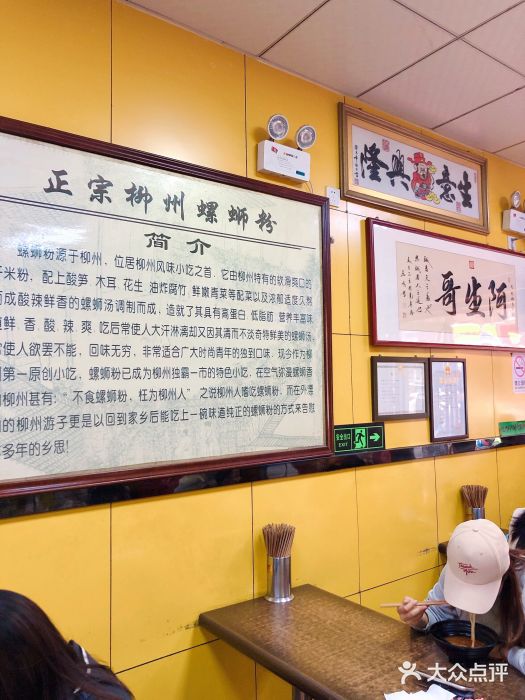 正宗柳州螺蛳粉
简介
螺蛳粉源于柳州，位居柳州风味小吃之首，它由柳州特有的软滑爽口的
米粉，配上酸笋 木耳 花生 油炸腐竹 鲜嫩青菜等配菜以及浓郁适度
成酸辣鲜香的螺蛳汤调制而成，造就了其具有高蛋白 低脂肪 营养丰富
鲜 香 酸 辣 爽 吃后常使人大汗淋漓却又因其清而不淡奇特鲜美的螺蛳汤
使人欲罢不能，回味无穷，非常适合广大时尚青年的独到口味，现今作为柳
第一原创小吃，螺蛳粉已成为柳州独霸一市的特色小吃，在空气弥漫螺蛳香
柳州甚有：“不食螺蛳粉，枉为柳州人” 之说柳州人嗜吃螺蛳粉，而在外漂
的柳州游子更是以回到家乡后能吃上一碗味道纯正的螺蛳粉的方式来告慰
多年的乡思!
隆興意生
哥生阿
安全出口
EXIT
大众点评